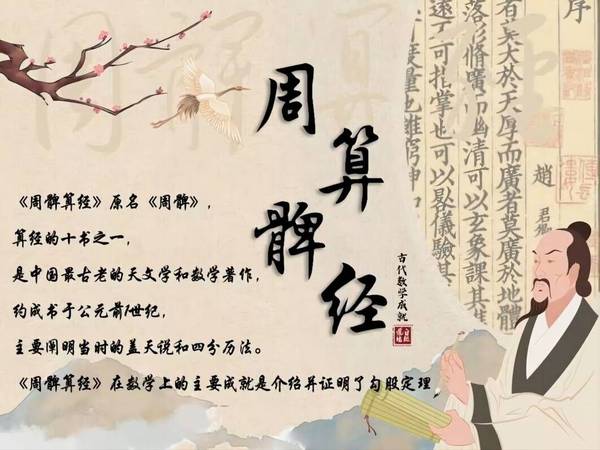 周髀算经
古代数学成就
《周髀算经》原名《周髀》，
算经的十书之一，
是中国最古老的天文学和数学著作，
约成书于公元前1世纪，
主要阐明当时的盖天说和四分历法。
《周髀算经》在数学上的主要成就是介绍并证明了勾股定理，
序
趙君卿
者莫大於天厚而廣者莫廣於地體
落形脩廣而幽清可以玄象課其
遠不可指掌也可以晷儀驗其
度量也雖窮神